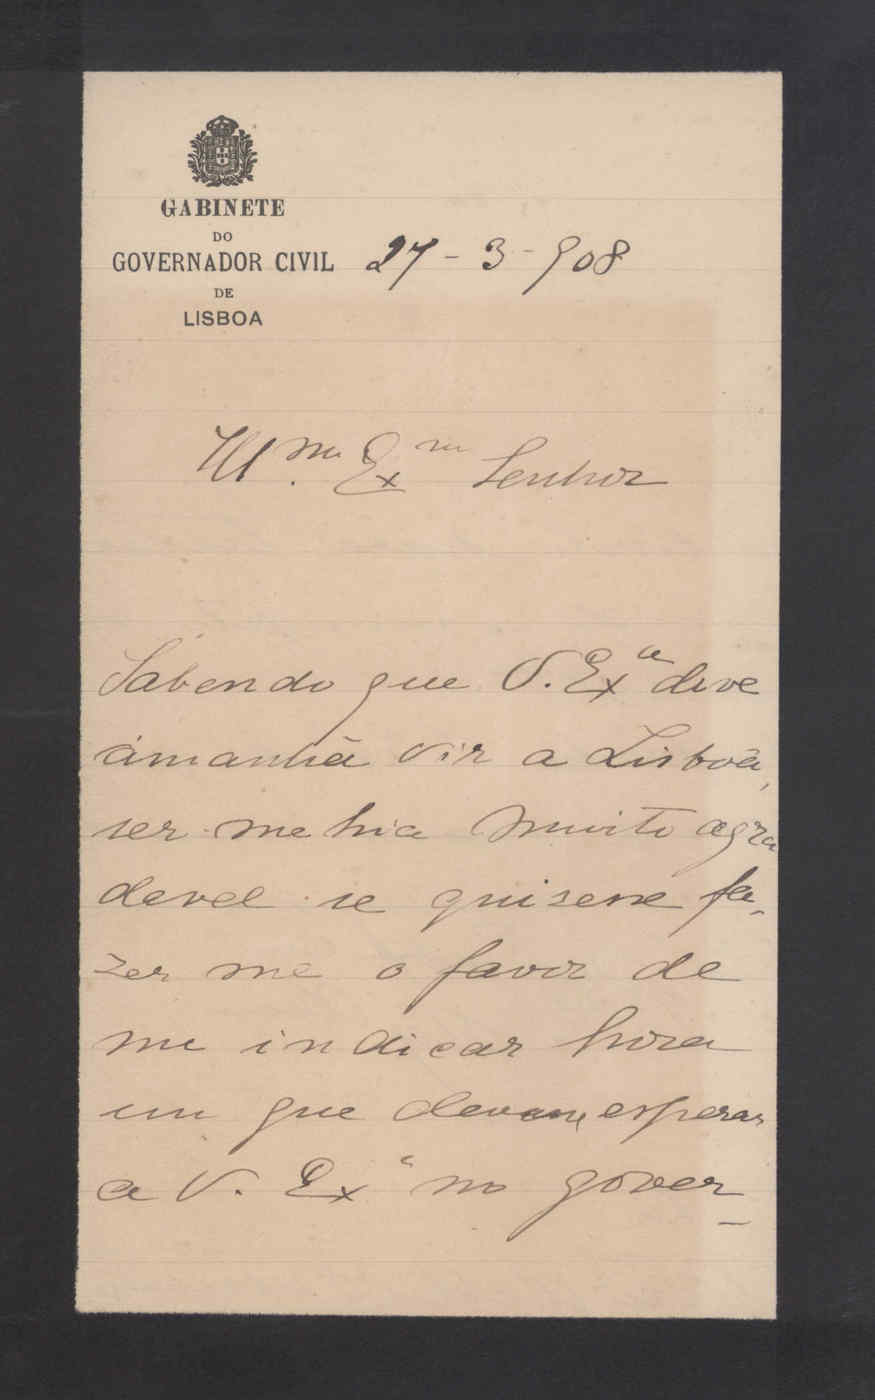 GABINETE
DO
GOVERNADOR CIVIL
DE
LISBOA
27-3-908
Illmo. Exmo Senhor
Sabendo que V. Exa deve
ámanhã vir a Lisboa,
ser-me hia muito agra
davel se quisesse fa-
zer me o favor de
me indicar hora
em que devam esperar
a V. Exa no gover-